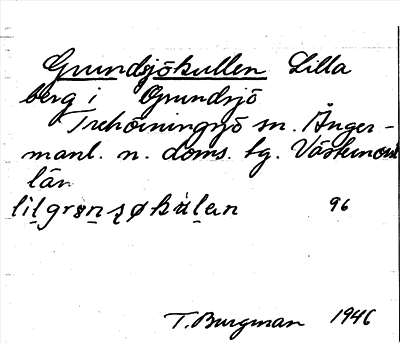 Grundsjökullen Lilla
berg i Grundsjö
Trehörningsjö sn. Ånger-
manl. n. doms. tg. Västernorrl
län
lilgrønsøkulan 96
T. Burgman 1946